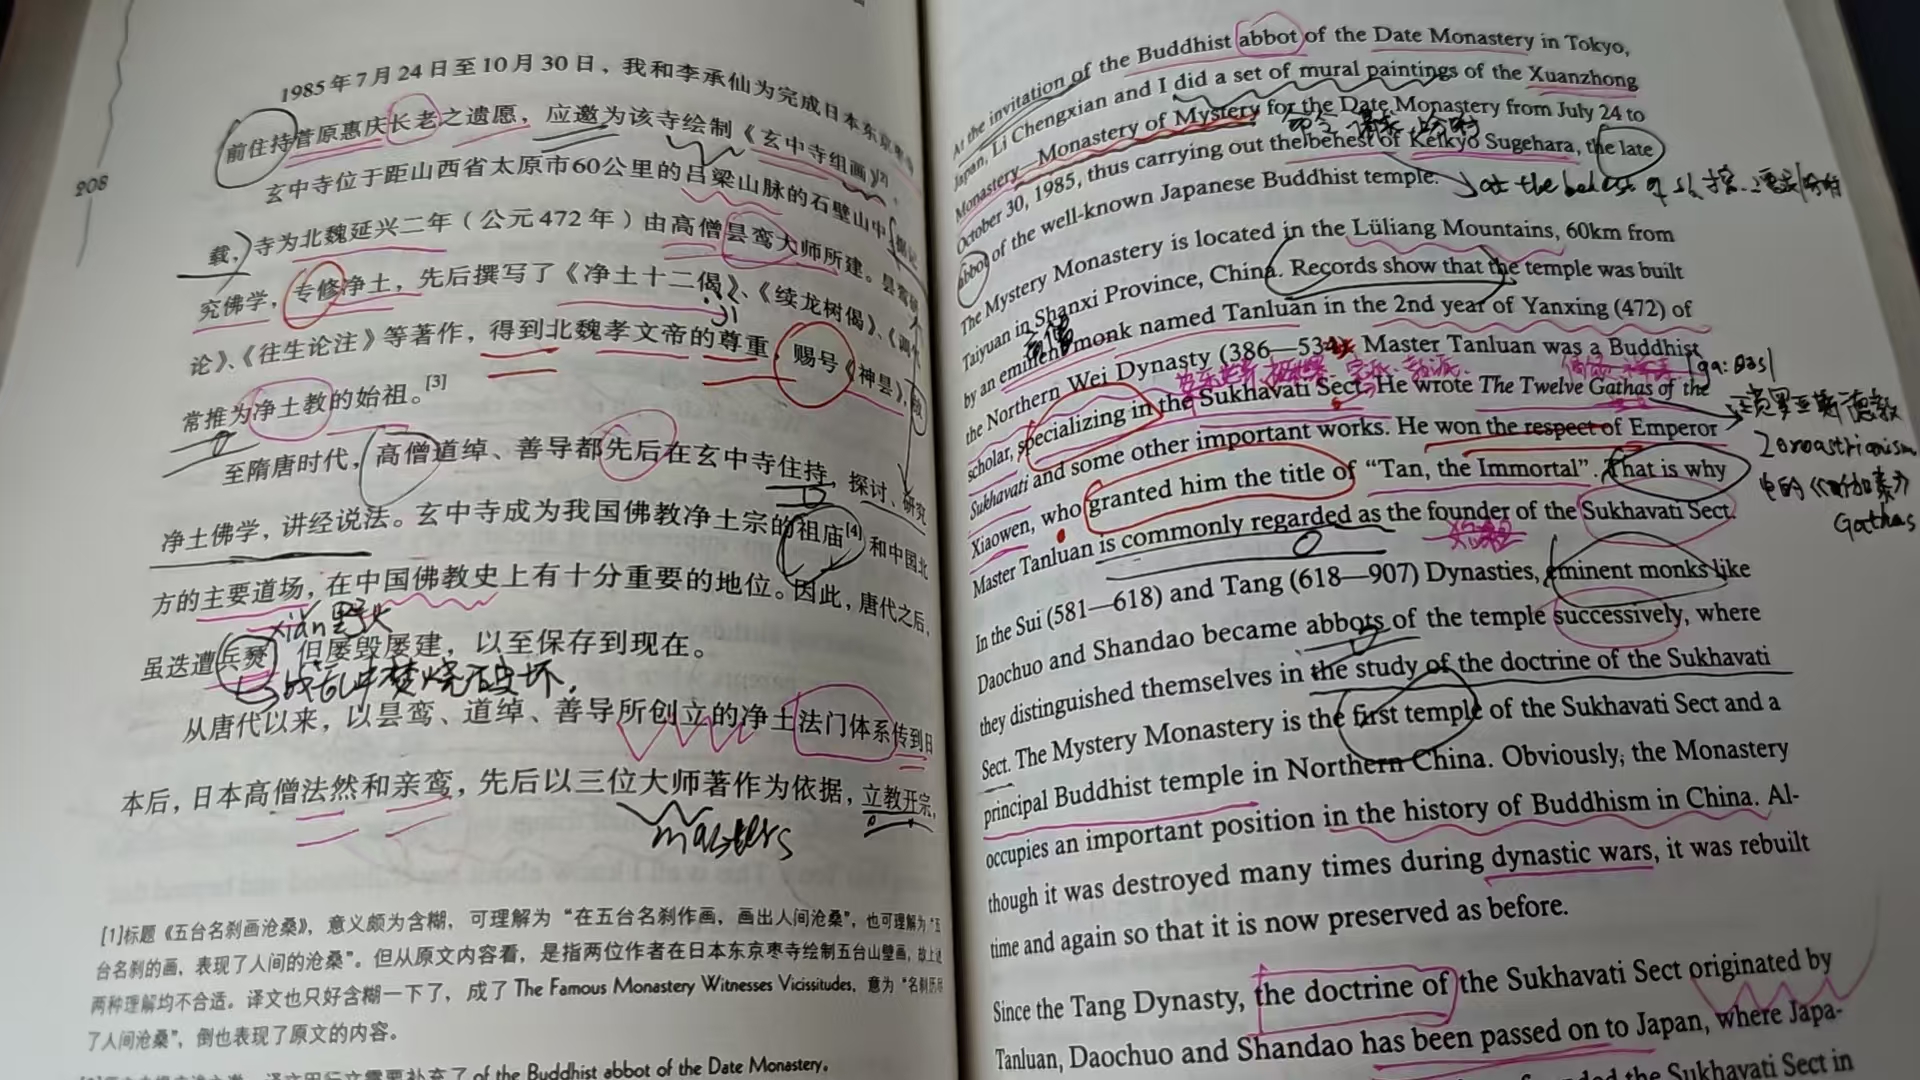 208
1985年7月24日至10月30日，我和李承仙为完成日本东京枣寺
前住持菅原惠庆长老之遗愿，应邀为该寺绘制《玄中寺组画》[2]。
玄中寺位于距山西省太原市60公里的吕梁山脉的石壁山中，据记
载，寺为北魏延兴二年（公元472年）由高僧昙鸾大师所建。昙鸾研
究佛学，专修净土，先后撰写了《净土十二偈》、《续龙树偈》、《调气
论》、《往生论注》等著作，得到北魏孝文帝的尊重，赐号《神昙》，故
常推为净土教的始祖。[3]
至隋唐时代，高僧道绰、善导都先后在玄中寺住持，探讨、研究
净土佛学，讲经说法。玄中寺成为我国佛教净土宗的祖庙[4]和中国北
方的主要道场，在中国佛教史上有十分重要的地位。因此，唐代之后，
xiǎn 野火
虽迭遭兵燹，但屡毁屡建，以至保存到现在。
战乱中焚烧破坏，
从唐代以来，以昙鸾、道绰、善导所创立的净土法门体系传到日
本后，日本高僧法然和亲鸾，先后以三位大师著作为依据，立教开宗，
masters
[1]标题《五台名刹画沧桑》，意义颇为含糊，可理解为“在五台名刹作画，画出人间沧桑”，也可理解为“五
台名刹的画，表现了人间的沧桑”。但从原文内容看，是指两位作者在日本东京枣寺绘制五台山壁画，故上述
两种理解均不合适。译文也只好含糊一下了，成了 The Famous Monastery Witnesses Vicissitudes，意为“名刹历尽
了人间沧桑”，倒也表现了原文的内容。
of the Buddhist abbot of the Date Monastery.
At the invitation of the Buddhist abbot of the Date Monastery in Tokyo,
Japan, Li Chengxian and I did a set of mural paintings of the Xuanzhong
Monastery—Monastery of Mystery for the Date Monastery from July 24 to
October 30, 1985, thus carrying out the behest of Keikyo Sugehara, the late
abbot of the well-known Japanese Buddhist temple.
at the behest of sb.
The Mystery Monastery is located in the Lüliang Mountains, 60km from
Taiyuan in Shanxi Province, China. Records show that the temple was built
高僧
by an eminent monk named Tanluan in the 2nd year of Yanxing (472) of
the Northern Wei Dynasty (386—534). Master Tanluan was a Buddhist
scholar, specializing in the Sukhavati Sect. He wrote The Twelve Gathas of the
Sukhavati and some other important works. He won the respect of Emperor
Zoroastrianism
Xiaowen, who granted him the title of “Tan, the Immortal”. That is why
中的《加泰》
Gathas
Master Tanluan is commonly regarded as the founder of the Sukhavati Sect.
In the Sui (581—618) and Tang (618—907) Dynasties, eminent monks like
Daochuo and Shandao became abbots of the temple successively, where
they distinguished themselves in the study of the doctrine of the Sukhavati
Sect. The Mystery Monastery is the first temple of the Sukhavati Sect and a
principal Buddhist temple in Northern China. Obviously, the Monastery
occupies an important position in the history of Buddhism in China. Al-
though it was destroyed many times during dynastic wars, it was rebuilt
time and again so that it is now preserved as before.
Since the Tang Dynasty, the doctrine of the Sukhavati Sect originated by
Tanluan, Daochuo and Shandao has been passed on to Japan, where Japa-
the Sukhavati Sect in